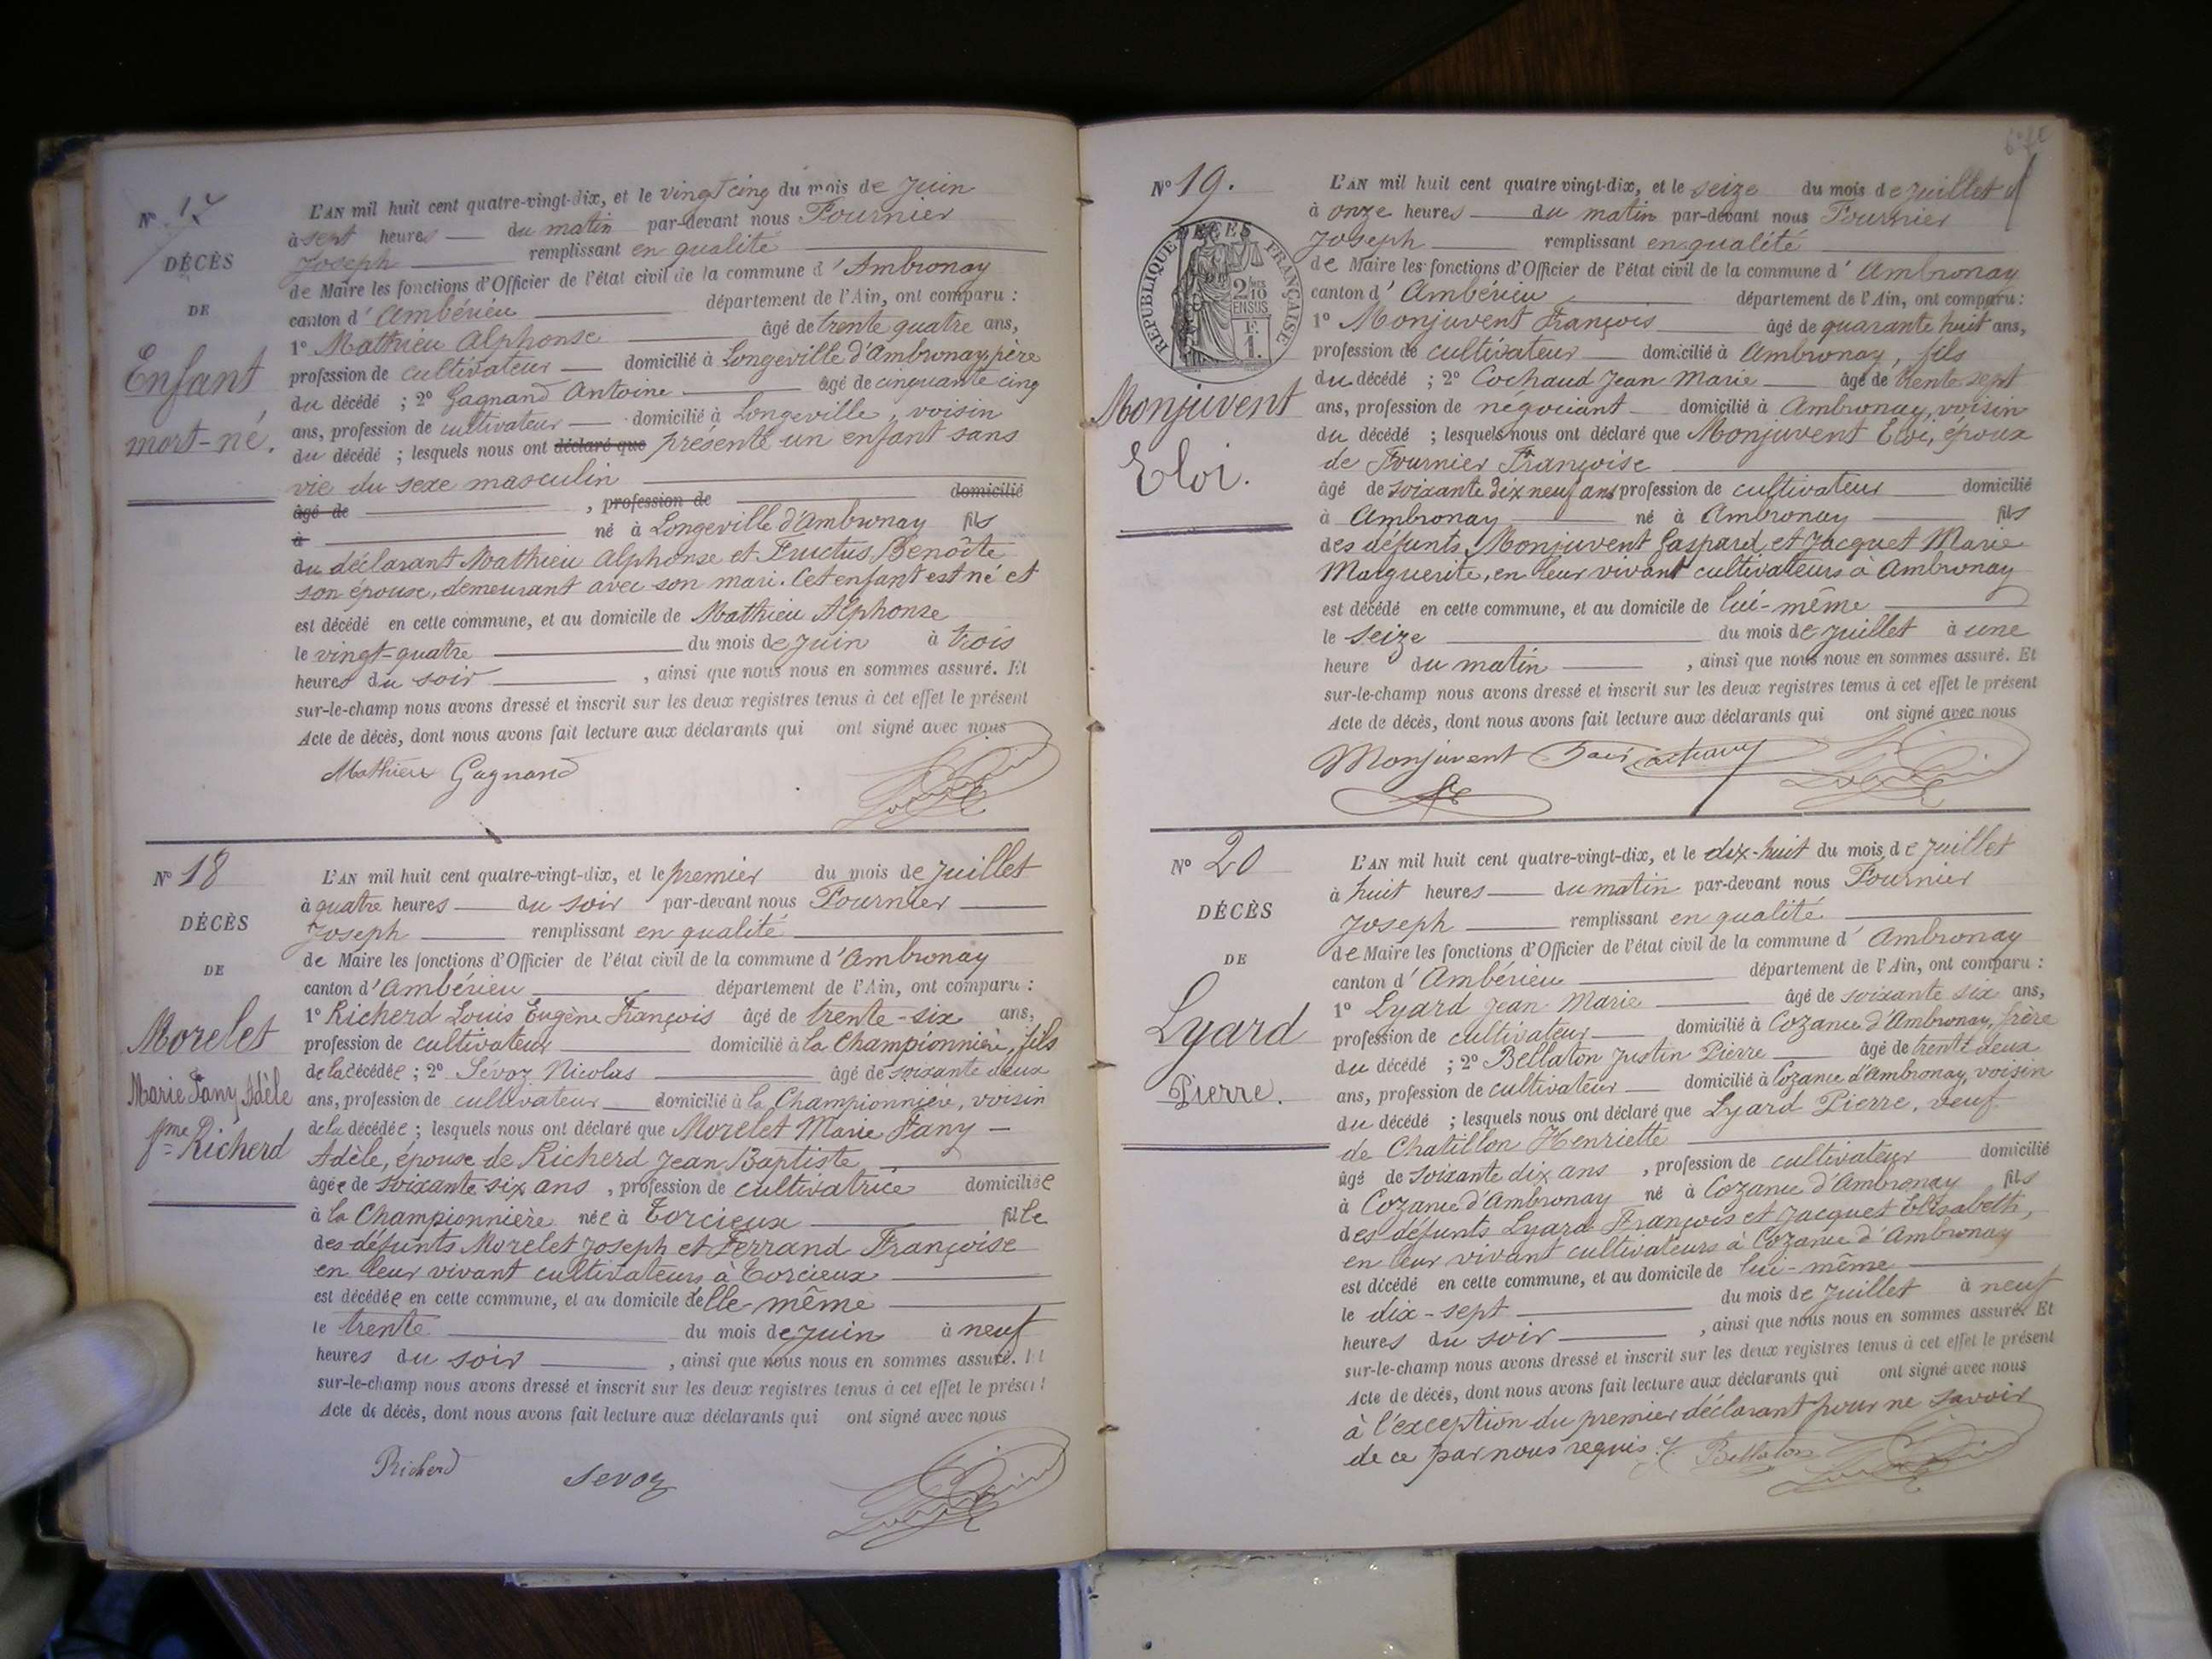 N° 17
DÉCÈS
DE
Enfant
mort-né.
L'AN mil huit cent quatre-vingt-dix, et le vingt cinq du mois de Juin
à sept heures du matin par-devant nous Fournier
Joseph remplissant en qualité
de Maire les fonctions d'Officier de l'état civil de la commune d'Ambronay
canton d'Ambérieu département de l'Ain, ont comparu :
1° Mathieu Alphonse âgé de trente quatre ans,
profession de cultivateur domicilié à Longeville d'Ambronay, père
du décédé ; 2° Gagnand Antoine âgé de cinquante cinq
ans, profession de cultivateur domicilié à Longeville, voisin
du décédé ; lesquels nous ont déclaré que présenté un enfant sans
vie du sexe masculin
âgé de , profession de domicilié
à né à Longeville d'Ambronay fils
du déclarant Mathieu Alphonse et Fructus Benoîte
son épouse, demeurant avec son mari. Cet enfant est né et
est décédé en cette commune, et au domicile de Mathieu Alphonse
le vingt-quatre du mois de Juin à trois
heures du soir , ainsi que nous nous en sommes assuré. Et
sur-le-champ nous avons dressé et inscrit sur les deux registres tenus à cet effet le présent
Acte de décès, dont nous avons fait lecture aux déclarants qui ont signé avec nous
Mathieu Gagnand
N° 18
DÉCÈS
DE
Morelet
Marie Fany Adèle
fme Richerd
L'AN mil huit cent quatre-vingt-dix, et le premier du mois de Juillet
à quatre heures du soir par-devant nous Fournier
Joseph remplissant en qualité
de Maire les fonctions d'Officier de l'état civil de la commune d'Ambronay
canton d'Ambérieu département de l'Ain, ont comparu :
1° Richerd Louis Eugène François âgé de trente-six ans,
profession de cultivateur domicilié à la Championnière, fils
de la décédée ; 2° Sévoz Nicolas âgé de soixante deux
ans, profession de cultivateur domicilié à la Championnière, voisin
de la décédée ; lesquels nous ont déclaré que Morelet Marie Fany
Adèle, épouse de Richerd Jean Baptiste
âgée de soixante six ans , profession de cultivatrice domiciliée
à la Championnière née à Torcieux fille
des défunts Morelet Joseph et Ferrand Françoise
en leur vivant cultivateurs à Torcieux
est décédée en cette commune, et au domicile delle-même
le trente du mois de Juin à neuf
heures du soir , ainsi que nous nous en sommes assuré. Et
sur-le-champ nous avons dressé et inscrit sur les deux registres tenus à cet effet le présent
Acte de décès, dont nous avons fait lecture aux déclarants qui ont signé avec nous
Richerd Sevoz
N° 19.
RÉPUBLIQUE FRANÇAISE
2/10 EN SUS
F. 1.
Monjuvent
Eloi.
L'AN mil huit cent quatre vingt-dix, et le seize du mois de Juillet
à onze heures du matin par-devant nous Fournier
Joseph remplissant en qualité
de Maire les fonctions d'Officier de l'état civil de la commune d'Ambronay
canton d'Ambérieu département de l'Ain, ont comparu :
1° Monjuvent François âgé de quarante huit ans,
profession de cultivateur domicilié à Ambronay, fils
du décédé ; 2° Cochaud Jean Marie âgé de trente sept
ans, profession de négociant domicilié à Ambronay, voisin
du décédé ; lesquels nous ont déclaré que Monjuvent Eloi, époux
de Fournier Françoise
âgé de soixante dix neuf ans profession de cultivateur domicilié
à Ambronay né à Ambronay fils
des défunts Monjuvent Gaspard et Jacquet Marie
Marguerite, en leur vivant cultivateurs à Ambronay
est décédé en cette commune, et au domicile de lui-même
le seize du mois de Juillet à une
heure du matin , ainsi que nous nous en sommes assuré. Et
sur-le-champ nous avons dressé et inscrit sur les deux registres tenus à cet effet le présent
Acte de décès, dont nous avons fait lecture aux déclarants qui ont signé avec nous
Monjuvent
N° 20
DÉCÈS
DE
Lyard
Pierre.
L'AN mil huit cent quatre-vingt-dix, et le dix-huit du mois de Juillet
à huit heures du matin par-devant nous Fournier
Joseph remplissant en qualité
de Maire les fonctions d'Officier de l'état civil de la commune d'Ambronay
canton d'Ambérieu département de l'Ain, ont comparu :
1° Lyard Jean Marie âgé de soixante six ans,
profession de cultivateur domicilié à Cozance d'Ambronay, frère
du décédé ; 2° Bellaton Justin Pierre âgé de trente deux
ans, profession de cultivateur domicilié à Cozance d'Ambronay, voisin
du décédé ; lesquels nous ont déclaré que Lyard Pierre, veuf
de Chatillon Henriette
âgé de soixante dix ans , profession de cultivateur domicilié
à Cozance d'Ambronay né à Cozance d'Ambronay fils
des défunts Lyard François et Jacquet Elisabeth,
en leur vivant cultivateurs à Cozance d'Ambronay
est décédé en cette commune, et au domicile de lui-même
le dix-sept du mois de Juillet à neuf
heures du soir , ainsi que nous nous en sommes assuré. Et
sur-le-champ nous avons dressé et inscrit sur les deux registres tenus à cet effet le présent
Acte de décès, dont nous avons fait lecture aux déclarants qui ont signé avec nous
à l'exception du premier déclarant pour ne savoir
de ce par nous requis. J. Bellaton